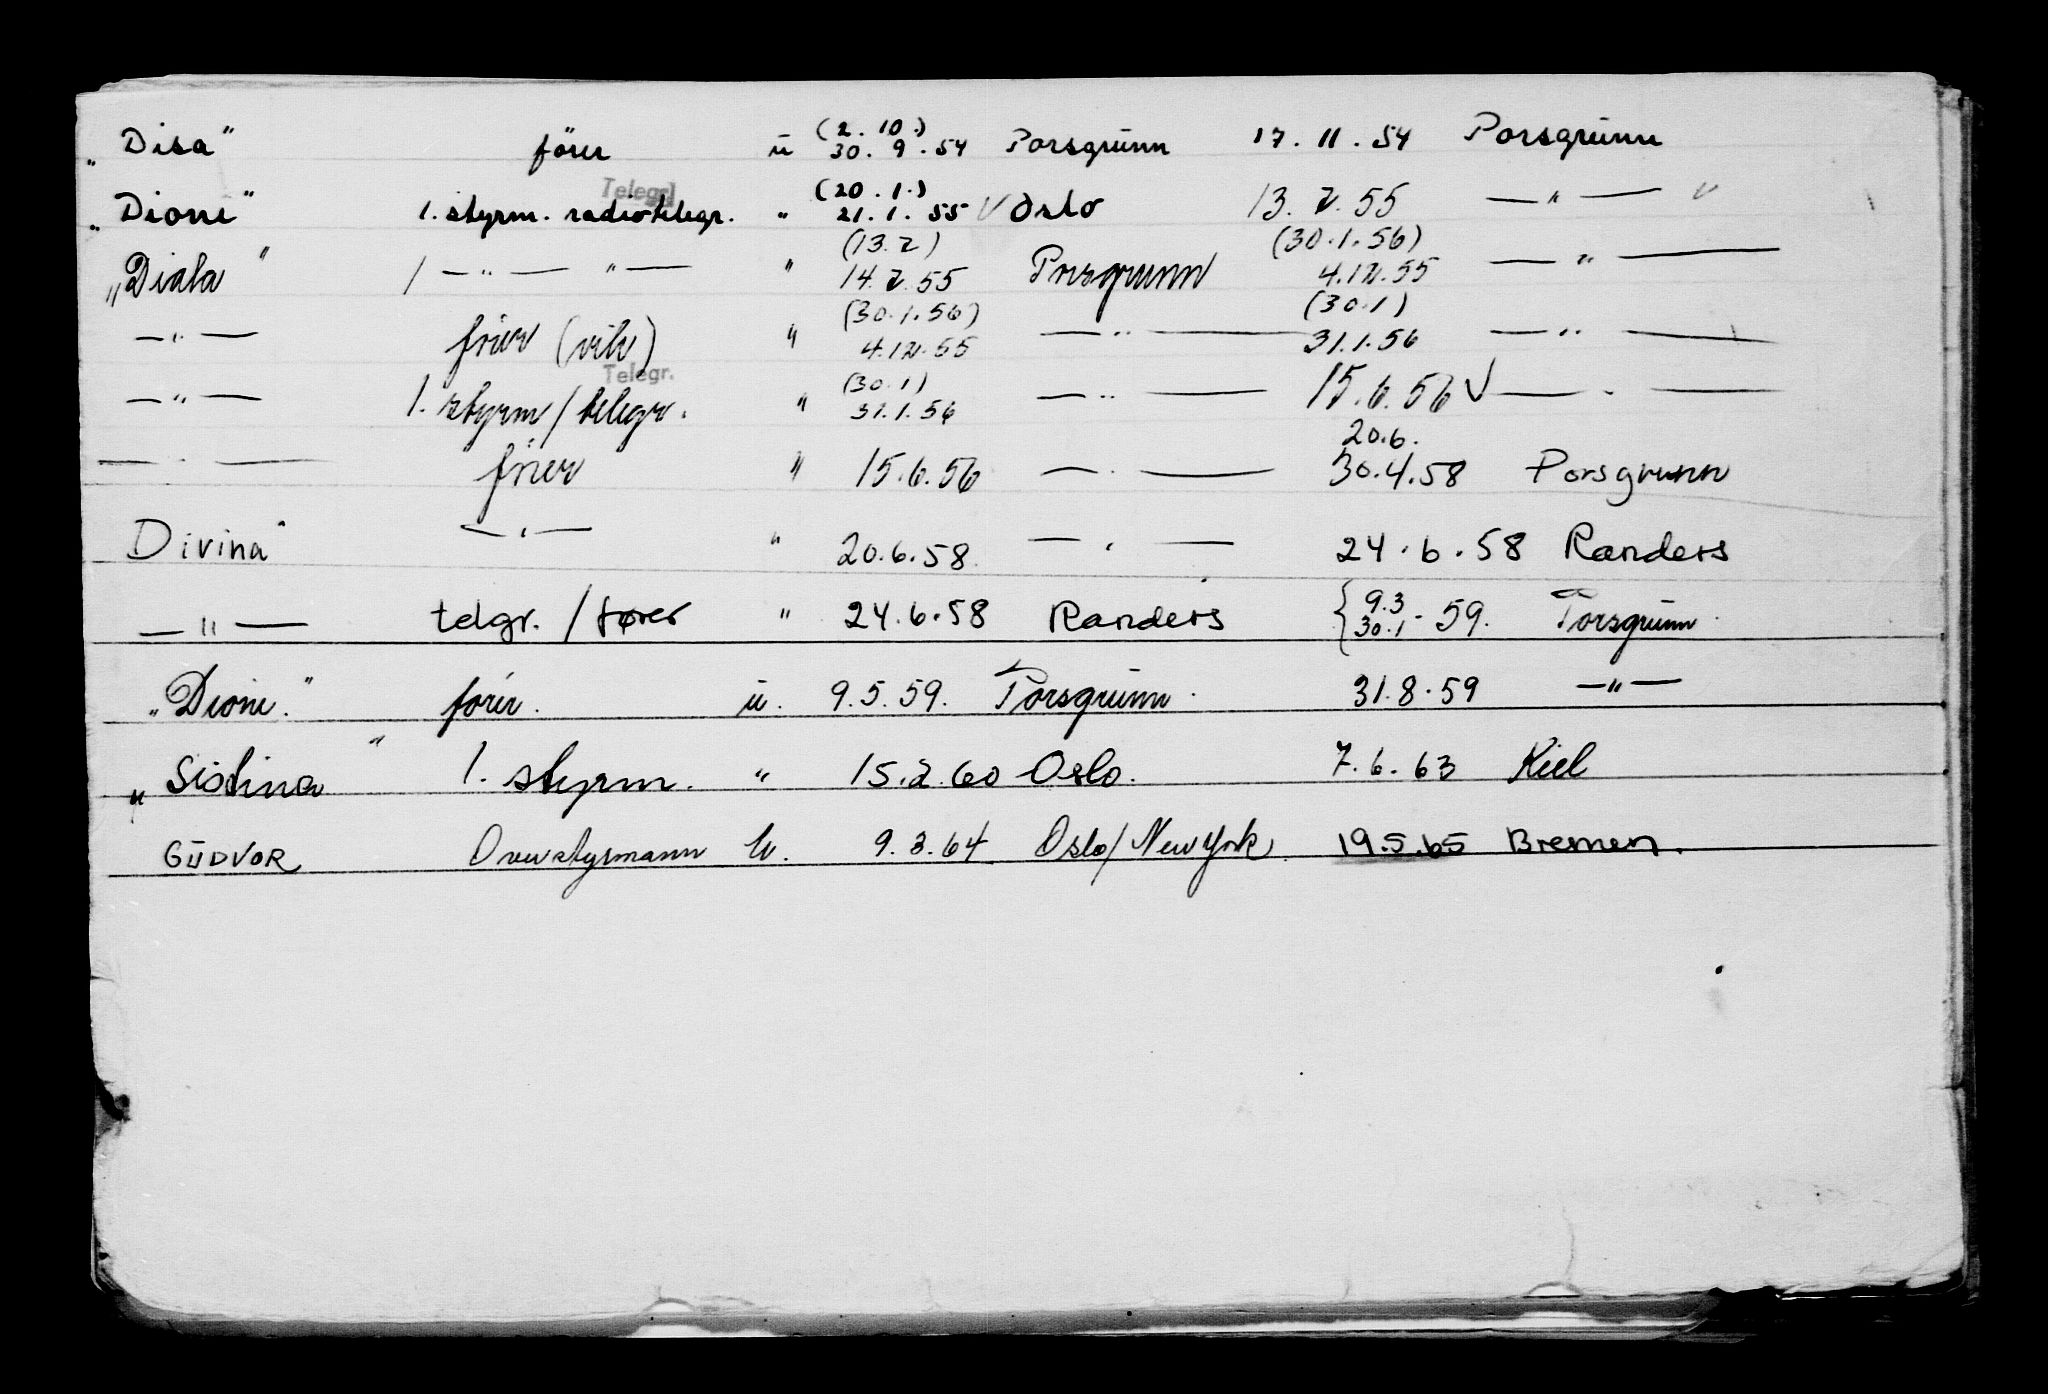 „Disa" förer u (2.10.) 30.9.54 Porsgrunn 17.11.54 Porsgrunn
Telegr.
„Dione" 1. styrm. radiotelegr. " (20.1.) 21.1.55 V Oslo 13.2.55 — " — v
„Diala" 1 — " — " — " (13.2) 14.2.55 Porsgrunn (30.1.56) 4.12.55 — " —
— " — förer (vik) " (30.1.56) 4.12.55 — " — (30.1) 31.1.56 — " —
Telegr.
— " — 1. styrm/telegr. " (30.1) 31.1.56 — " — 15.6.56 V — " —
— " — förer " 15.6.56 — " — 20.6. 30.4.58 Porsgrunn
Divina" — " — " 20.6.58 — " — 24.6.58 Randers
— " — telgr./fører " 24.6.58 Randers { 9.3 30.1 - 59. Porsgrunn
„Dione." förer. u. 9.5.59. Porsgrunn. 31.8.59 — " —
„Sistina" 1. styrm. " 15.2.60 Oslo. 7.6.63 Kiel
GUDVOR Overstyrmann U. 9.3.64 Oslo/New York 19.5.65 Bremen.